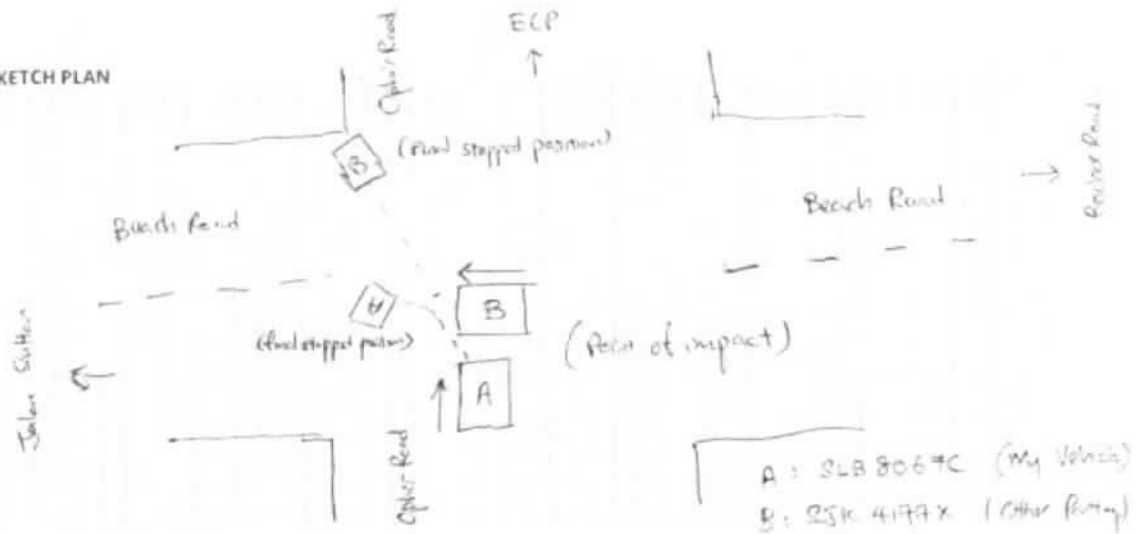 ECP
KETCH PLAN
Ophir Road
B
(final stopped position)
Beach Road
Beach Road
B
A
(final stopped position)
(Point of impact)
Jalan Sultan
A
Ophir Road
A: SLB 8067C (My Vehicle)
B: SJK 4177X (Other Party)